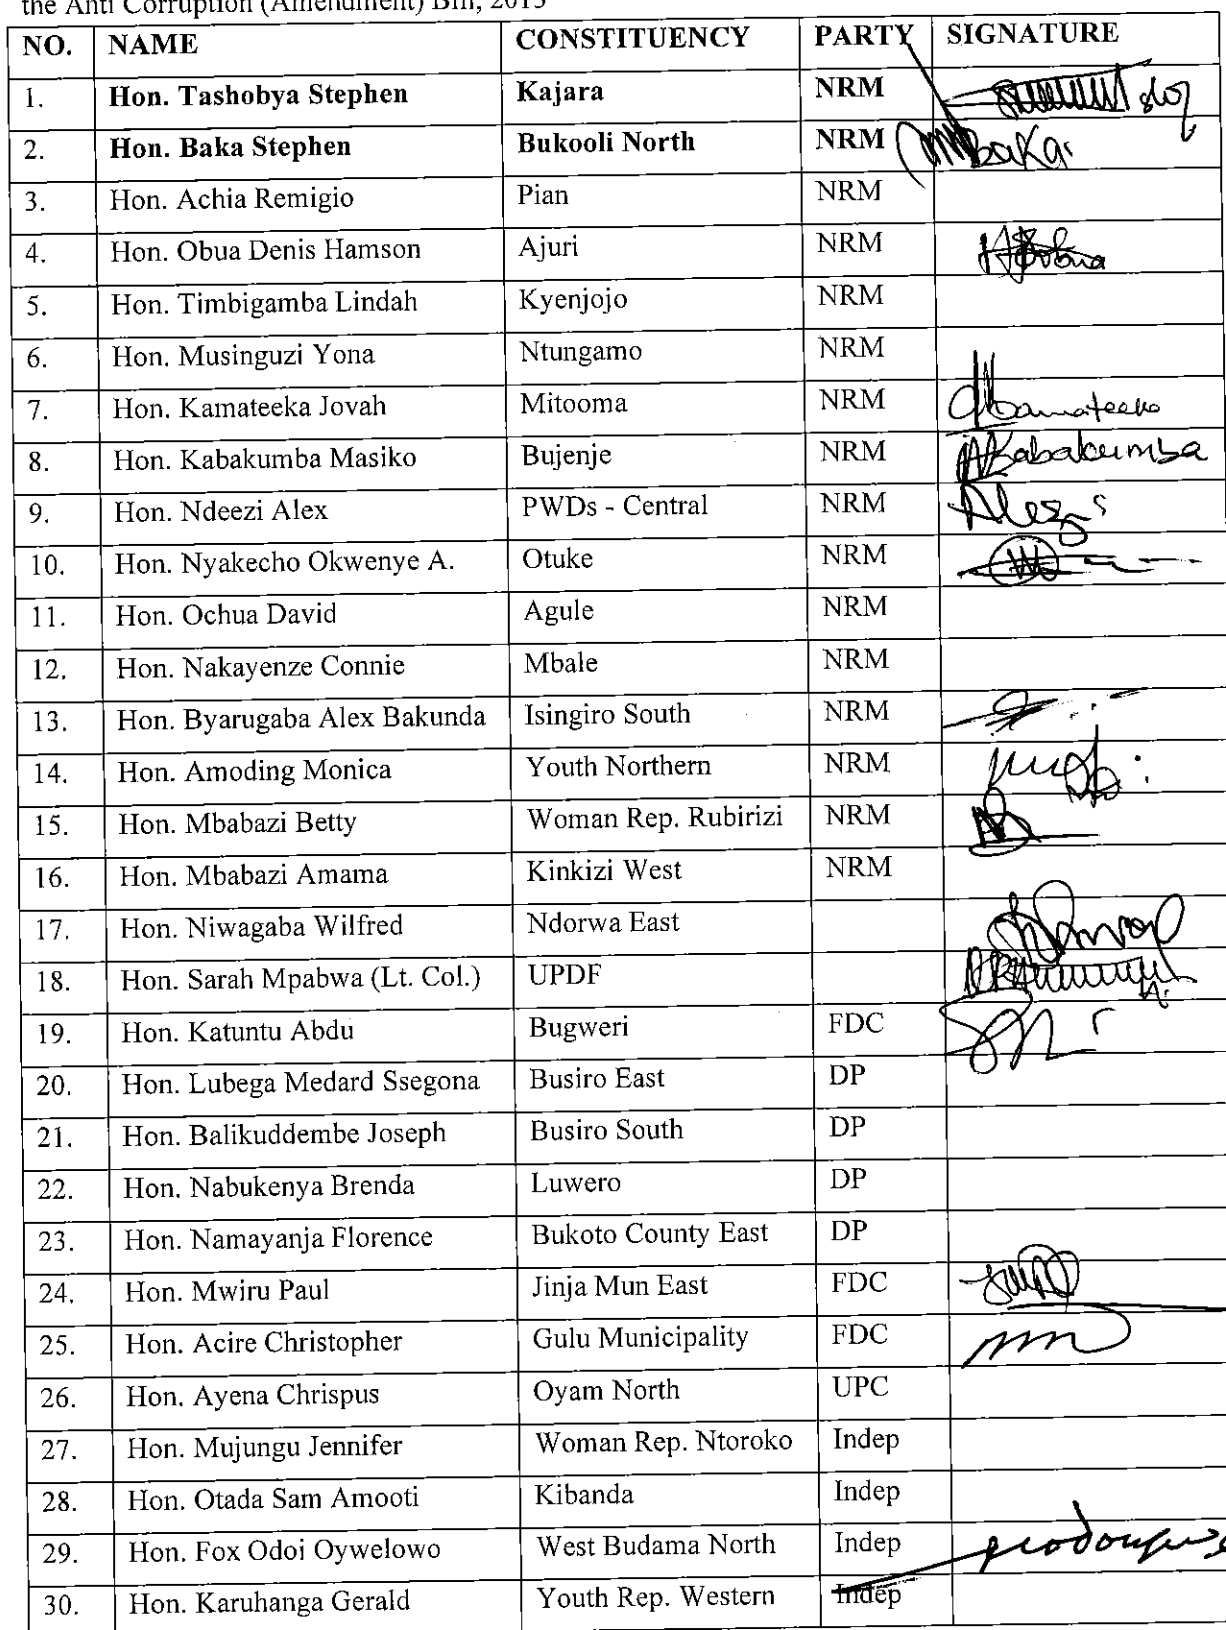 the Anti Corruption (Amendment) Bill, 2013
NO. NAME CONSTITUENCY PARTY SIGNATURE
1. Hon. Tashobya Stephen Kajara NRM
2. Hon. Baka Stephen Bukooli North NRM Mbaka
3. Hon. Achia Remigio Pian NRM
4. Hon. Obua Denis Hamson Ajuri NRM
5. Hon. Timbigamba Lindah Kyenjojo NRM
6. Hon. Musinguzi Yona Ntungamo NRM
7. Hon. Kamateeka Jovah Mitooma NRM
8. Hon. Kabakumba Masiko Bujenje NRM Kabakumba
9. Hon. Ndeezi Alex PWDs - Central NRM
10. Hon. Nyakecho Okwenye A. Otuke NRM
11. Hon. Ochua David Agule NRM
12. Hon. Nakayenze Connie Mbale NRM
13. Hon. Byarugaba Alex Bakunda Isingiro South NRM
14. Hon. Amoding Monica Youth Northern NRM
15. Hon. Mbabazi Betty Woman Rep. Rubirizi NRM
16. Hon. Mbabazi Amama Kinkizi West NRM
17. Hon. Niwagaba Wilfred Ndorwa East
18. Hon. Sarah Mpabwa (Lt. Col.) UPDF
19. Hon. Katuntu Abdu Bugweri FDC
20. Hon. Lubega Medard Ssegona Busiro East DP
21. Hon. Balikuddembe Joseph Busiro South DP
22. Hon. Nabukenya Brenda Luwero DP
23. Hon. Namayanja Florence Bukoto County East DP
24. Hon. Mwiru Paul Jinja Mun East FDC
25. Hon. Acire Christopher Gulu Municipality FDC
26. Hon. Ayena Chrispus Oyam North UPC
27. Hon. Mujungu Jennifer Woman Rep. Ntoroko Indep
28. Hon. Otada Sam Amooti Kibanda Indep
29. Hon. Fox Odoi Oywelowo West Budama North Indep
30. Hon. Karuhanga Gerald Youth Rep. Western Indep